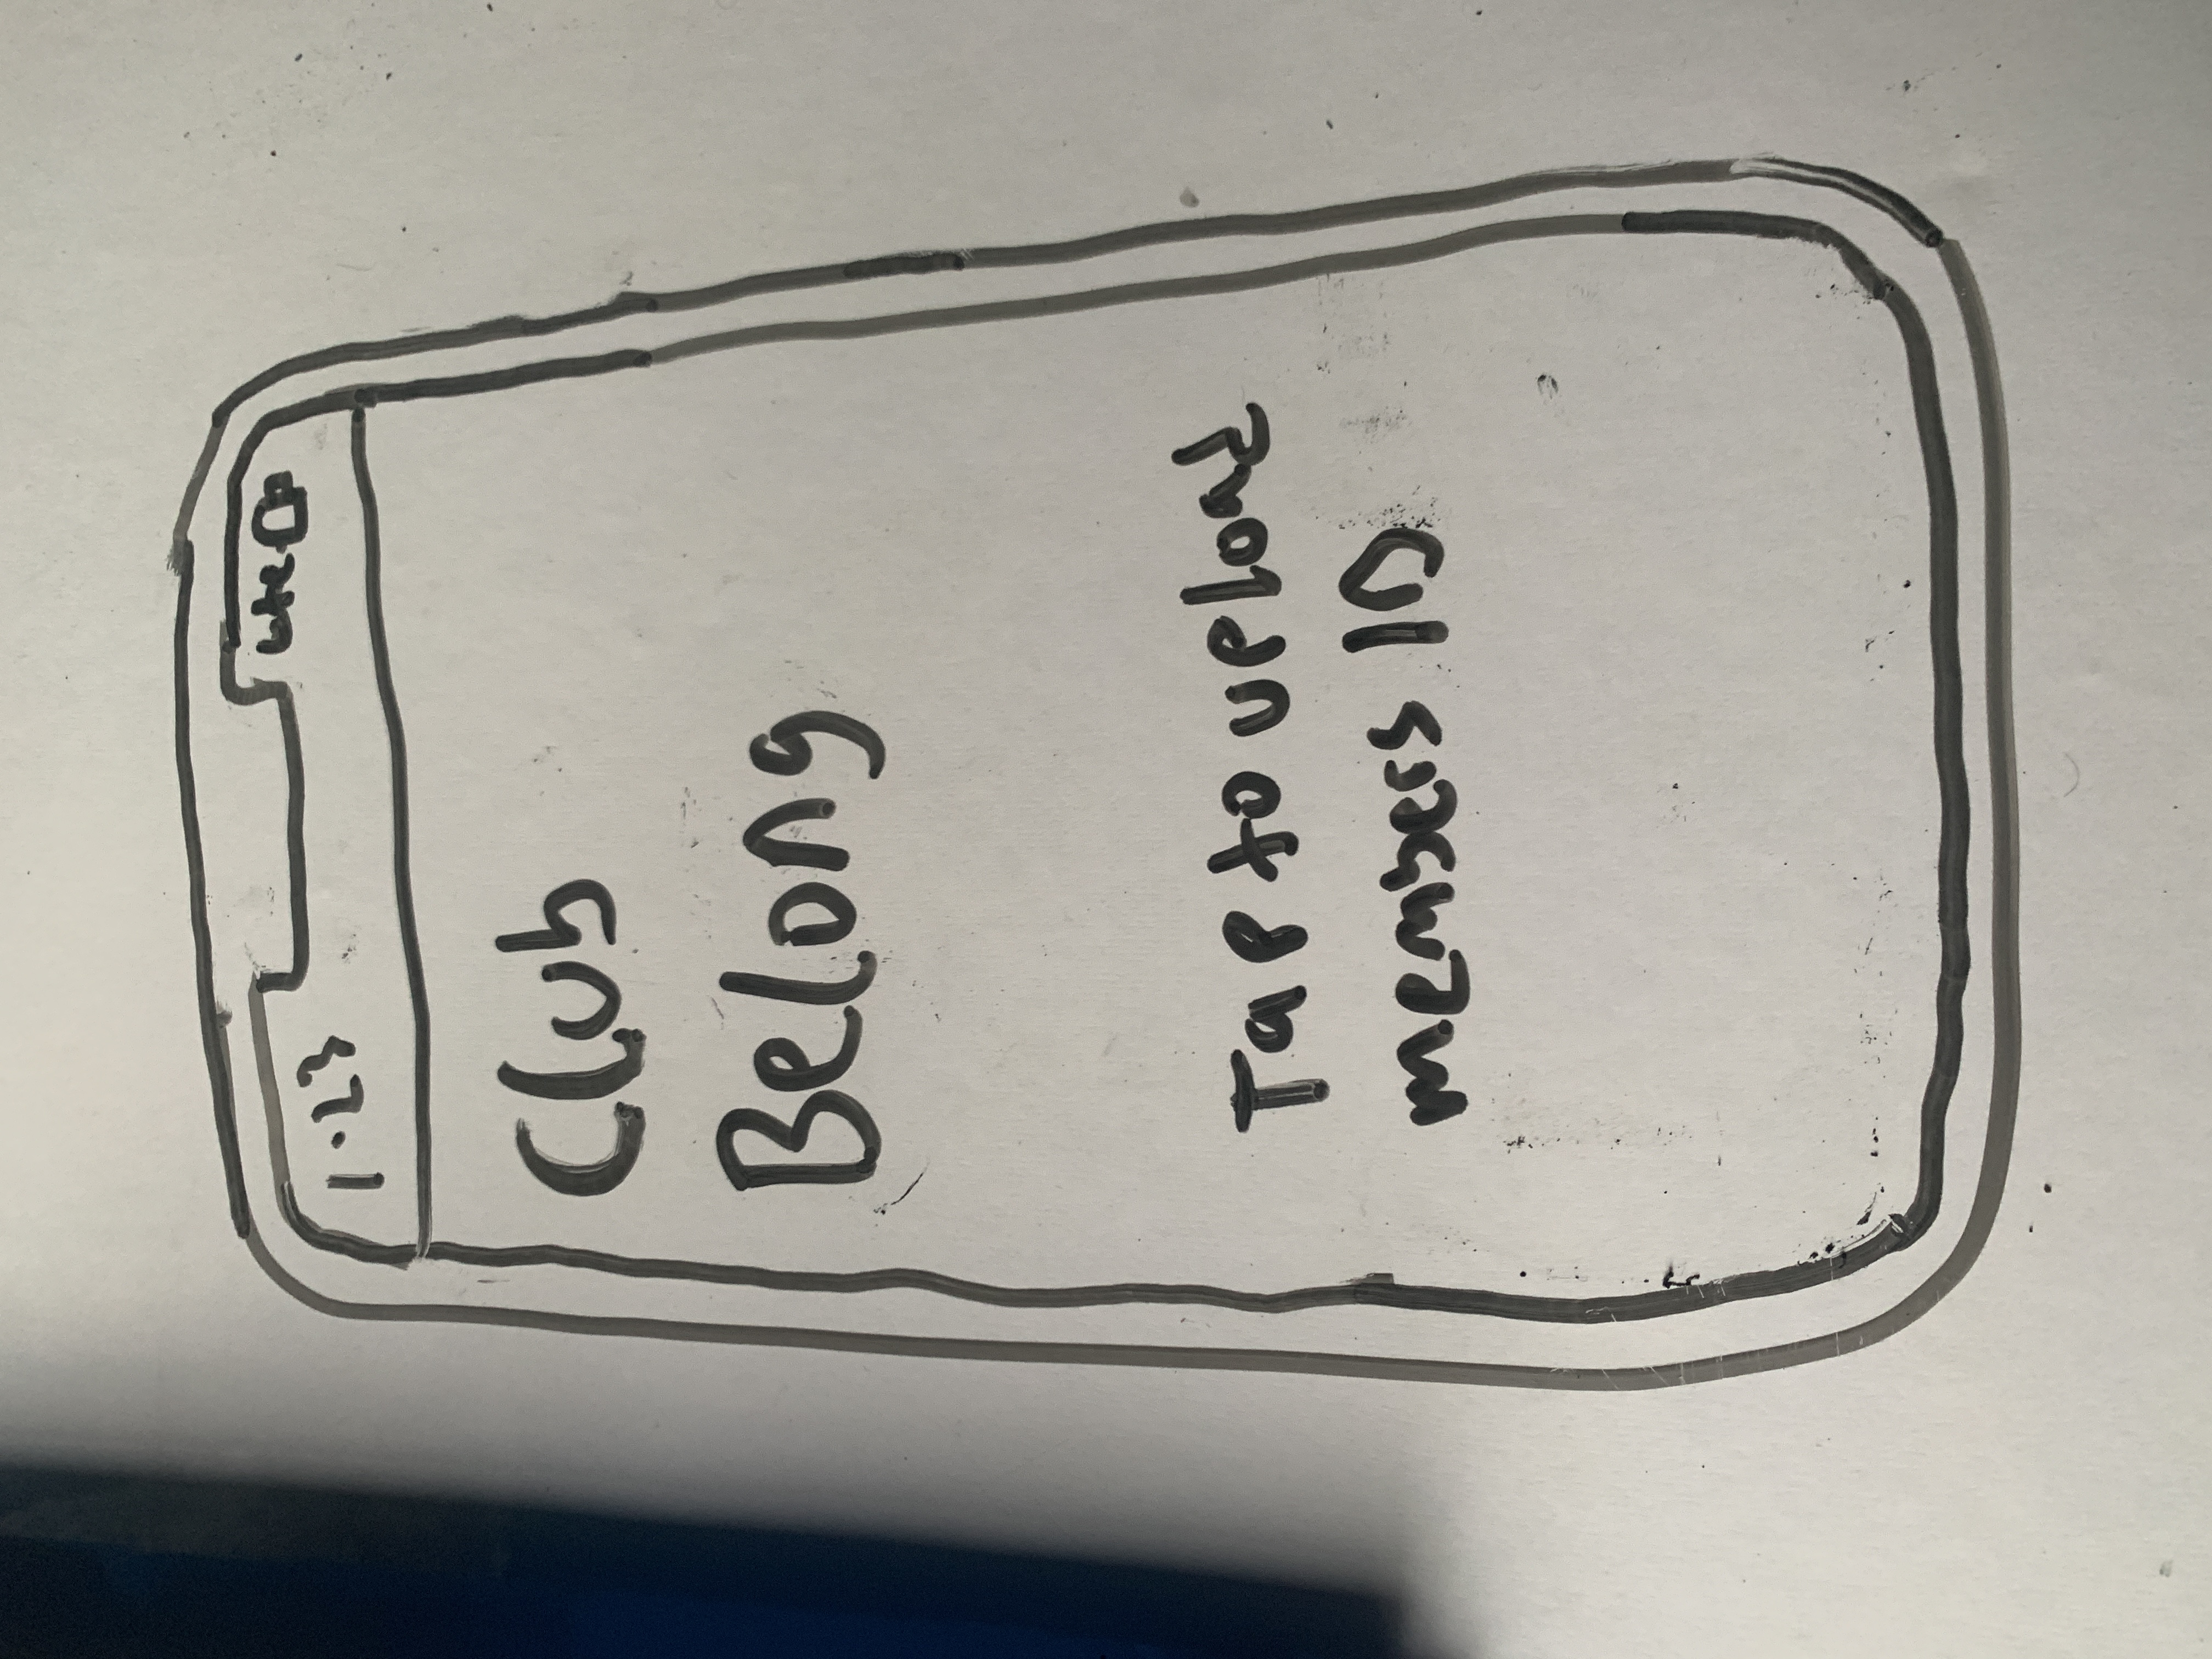 1.23 Lte
Club
Belong
Tap to upload
members ID